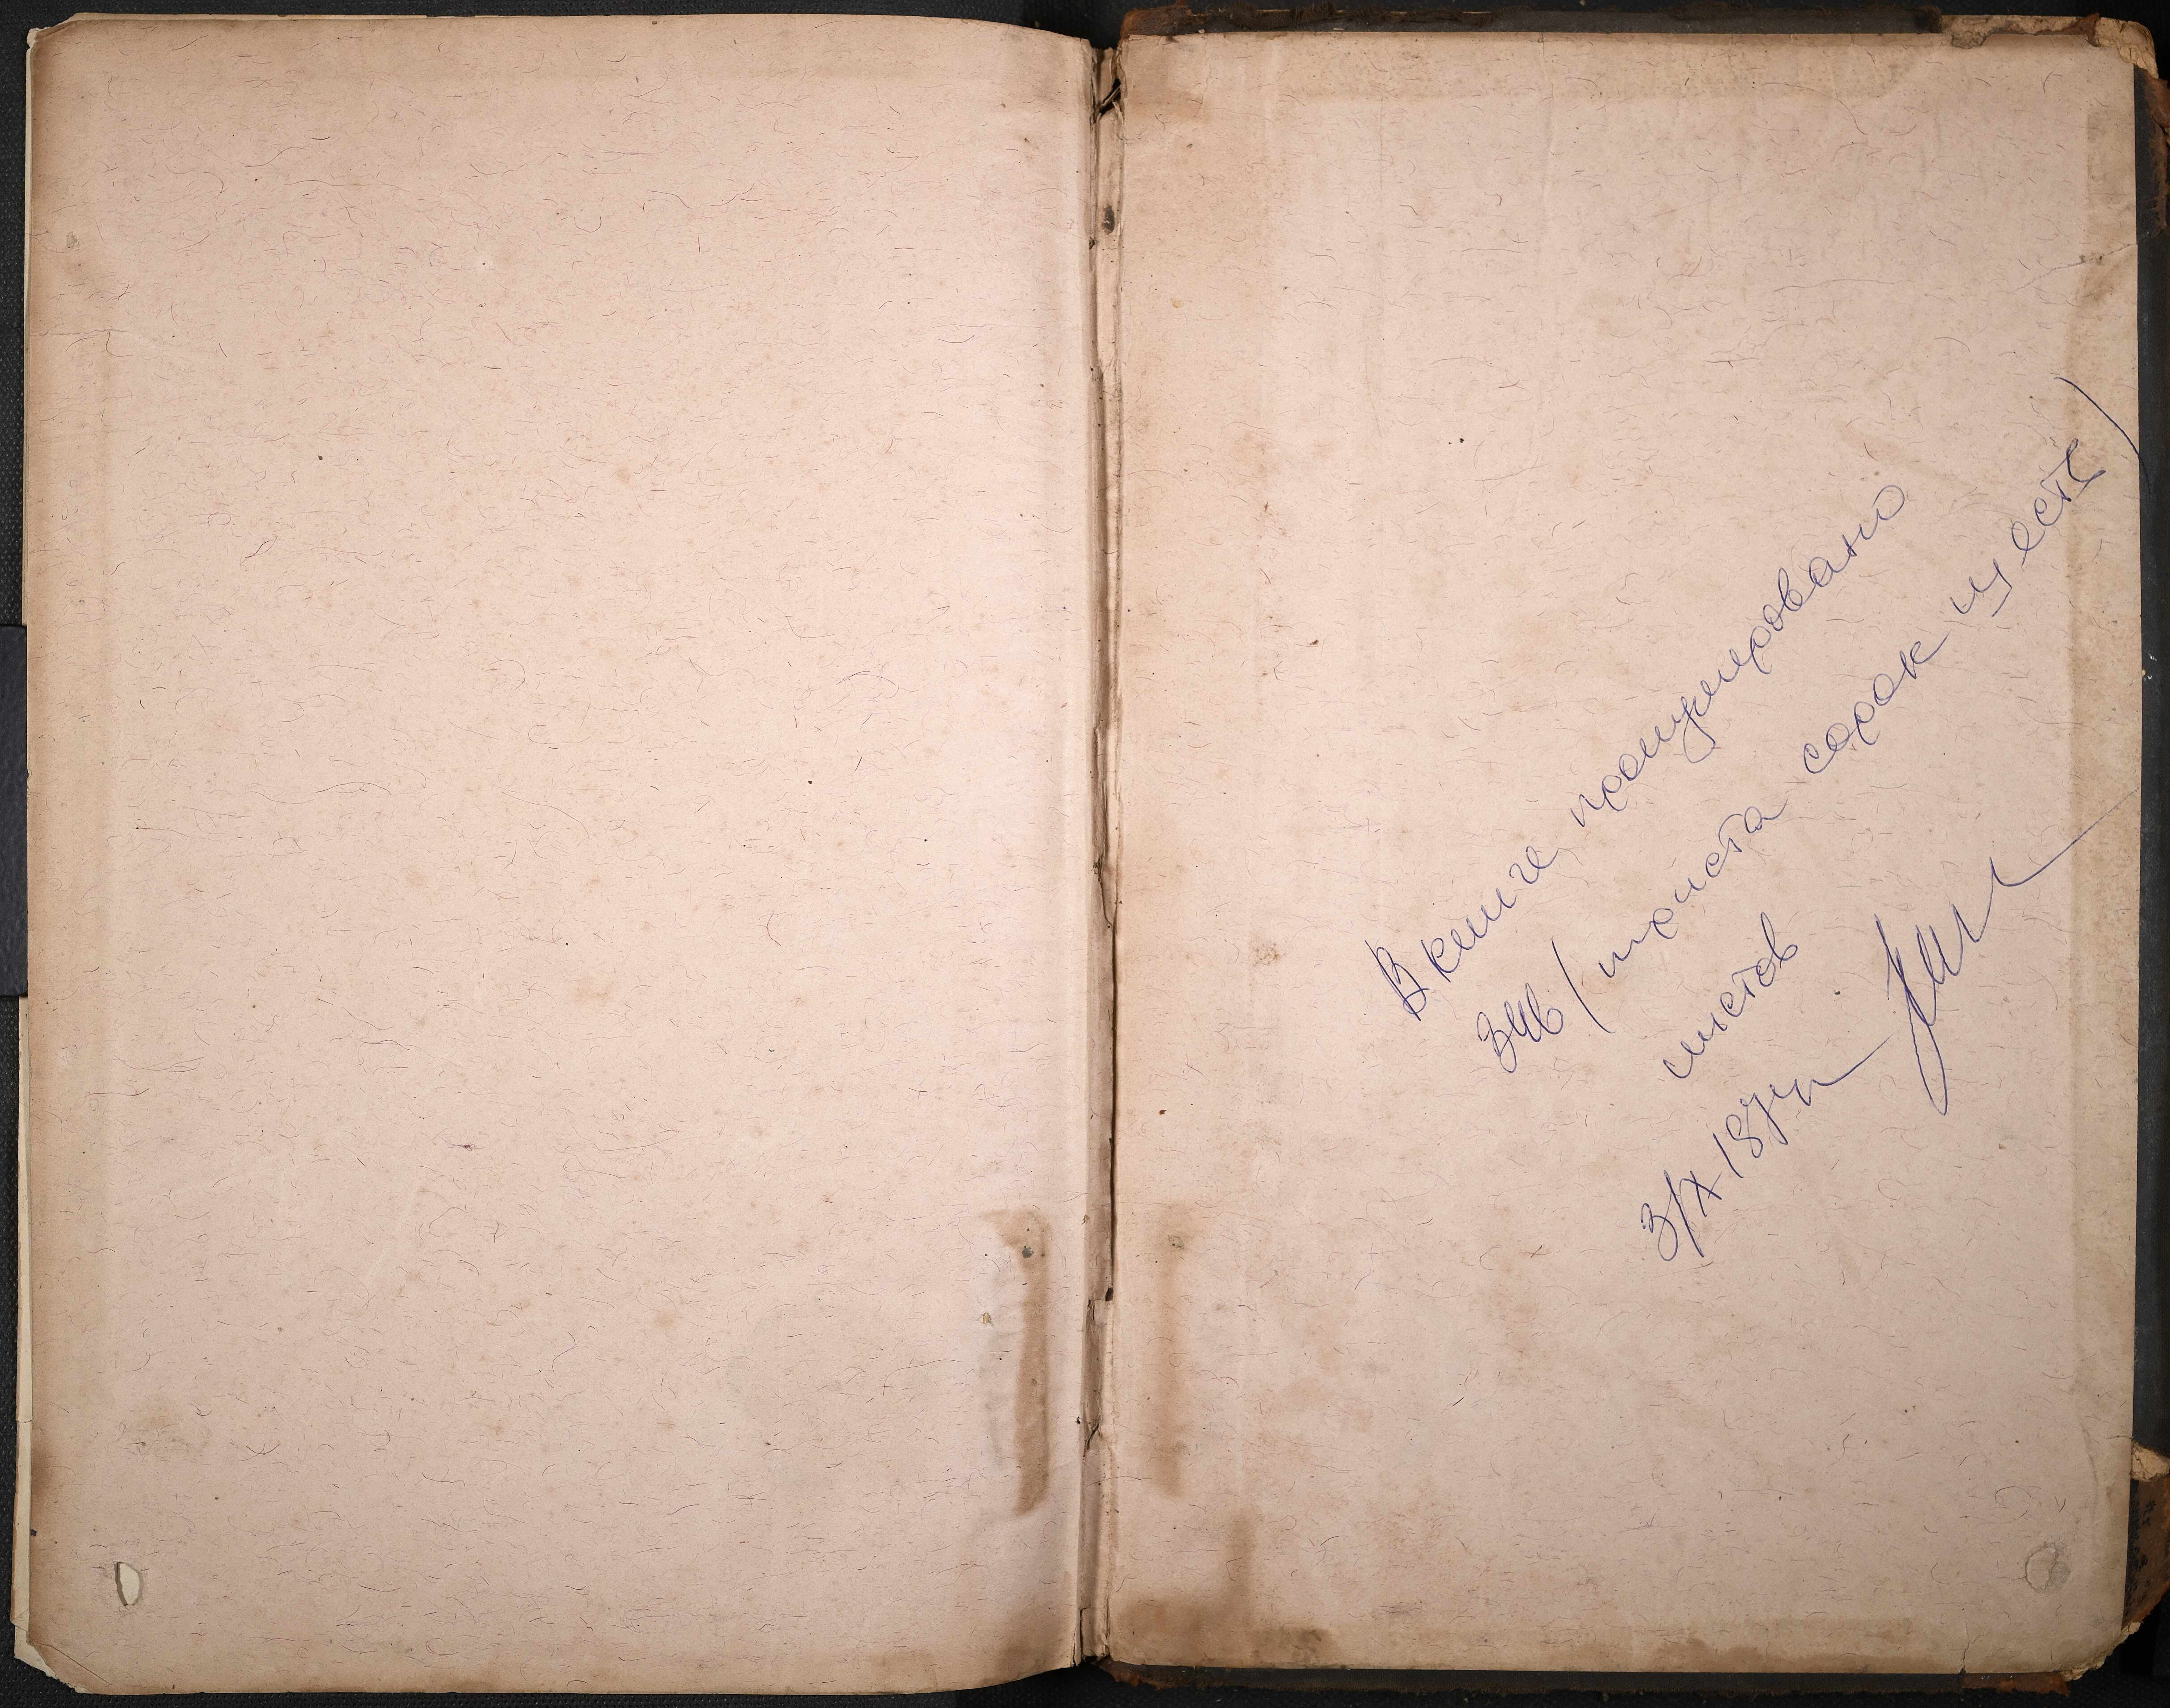 В книге пронумеровано
346 (триста сорок шесть)
листов
3/X